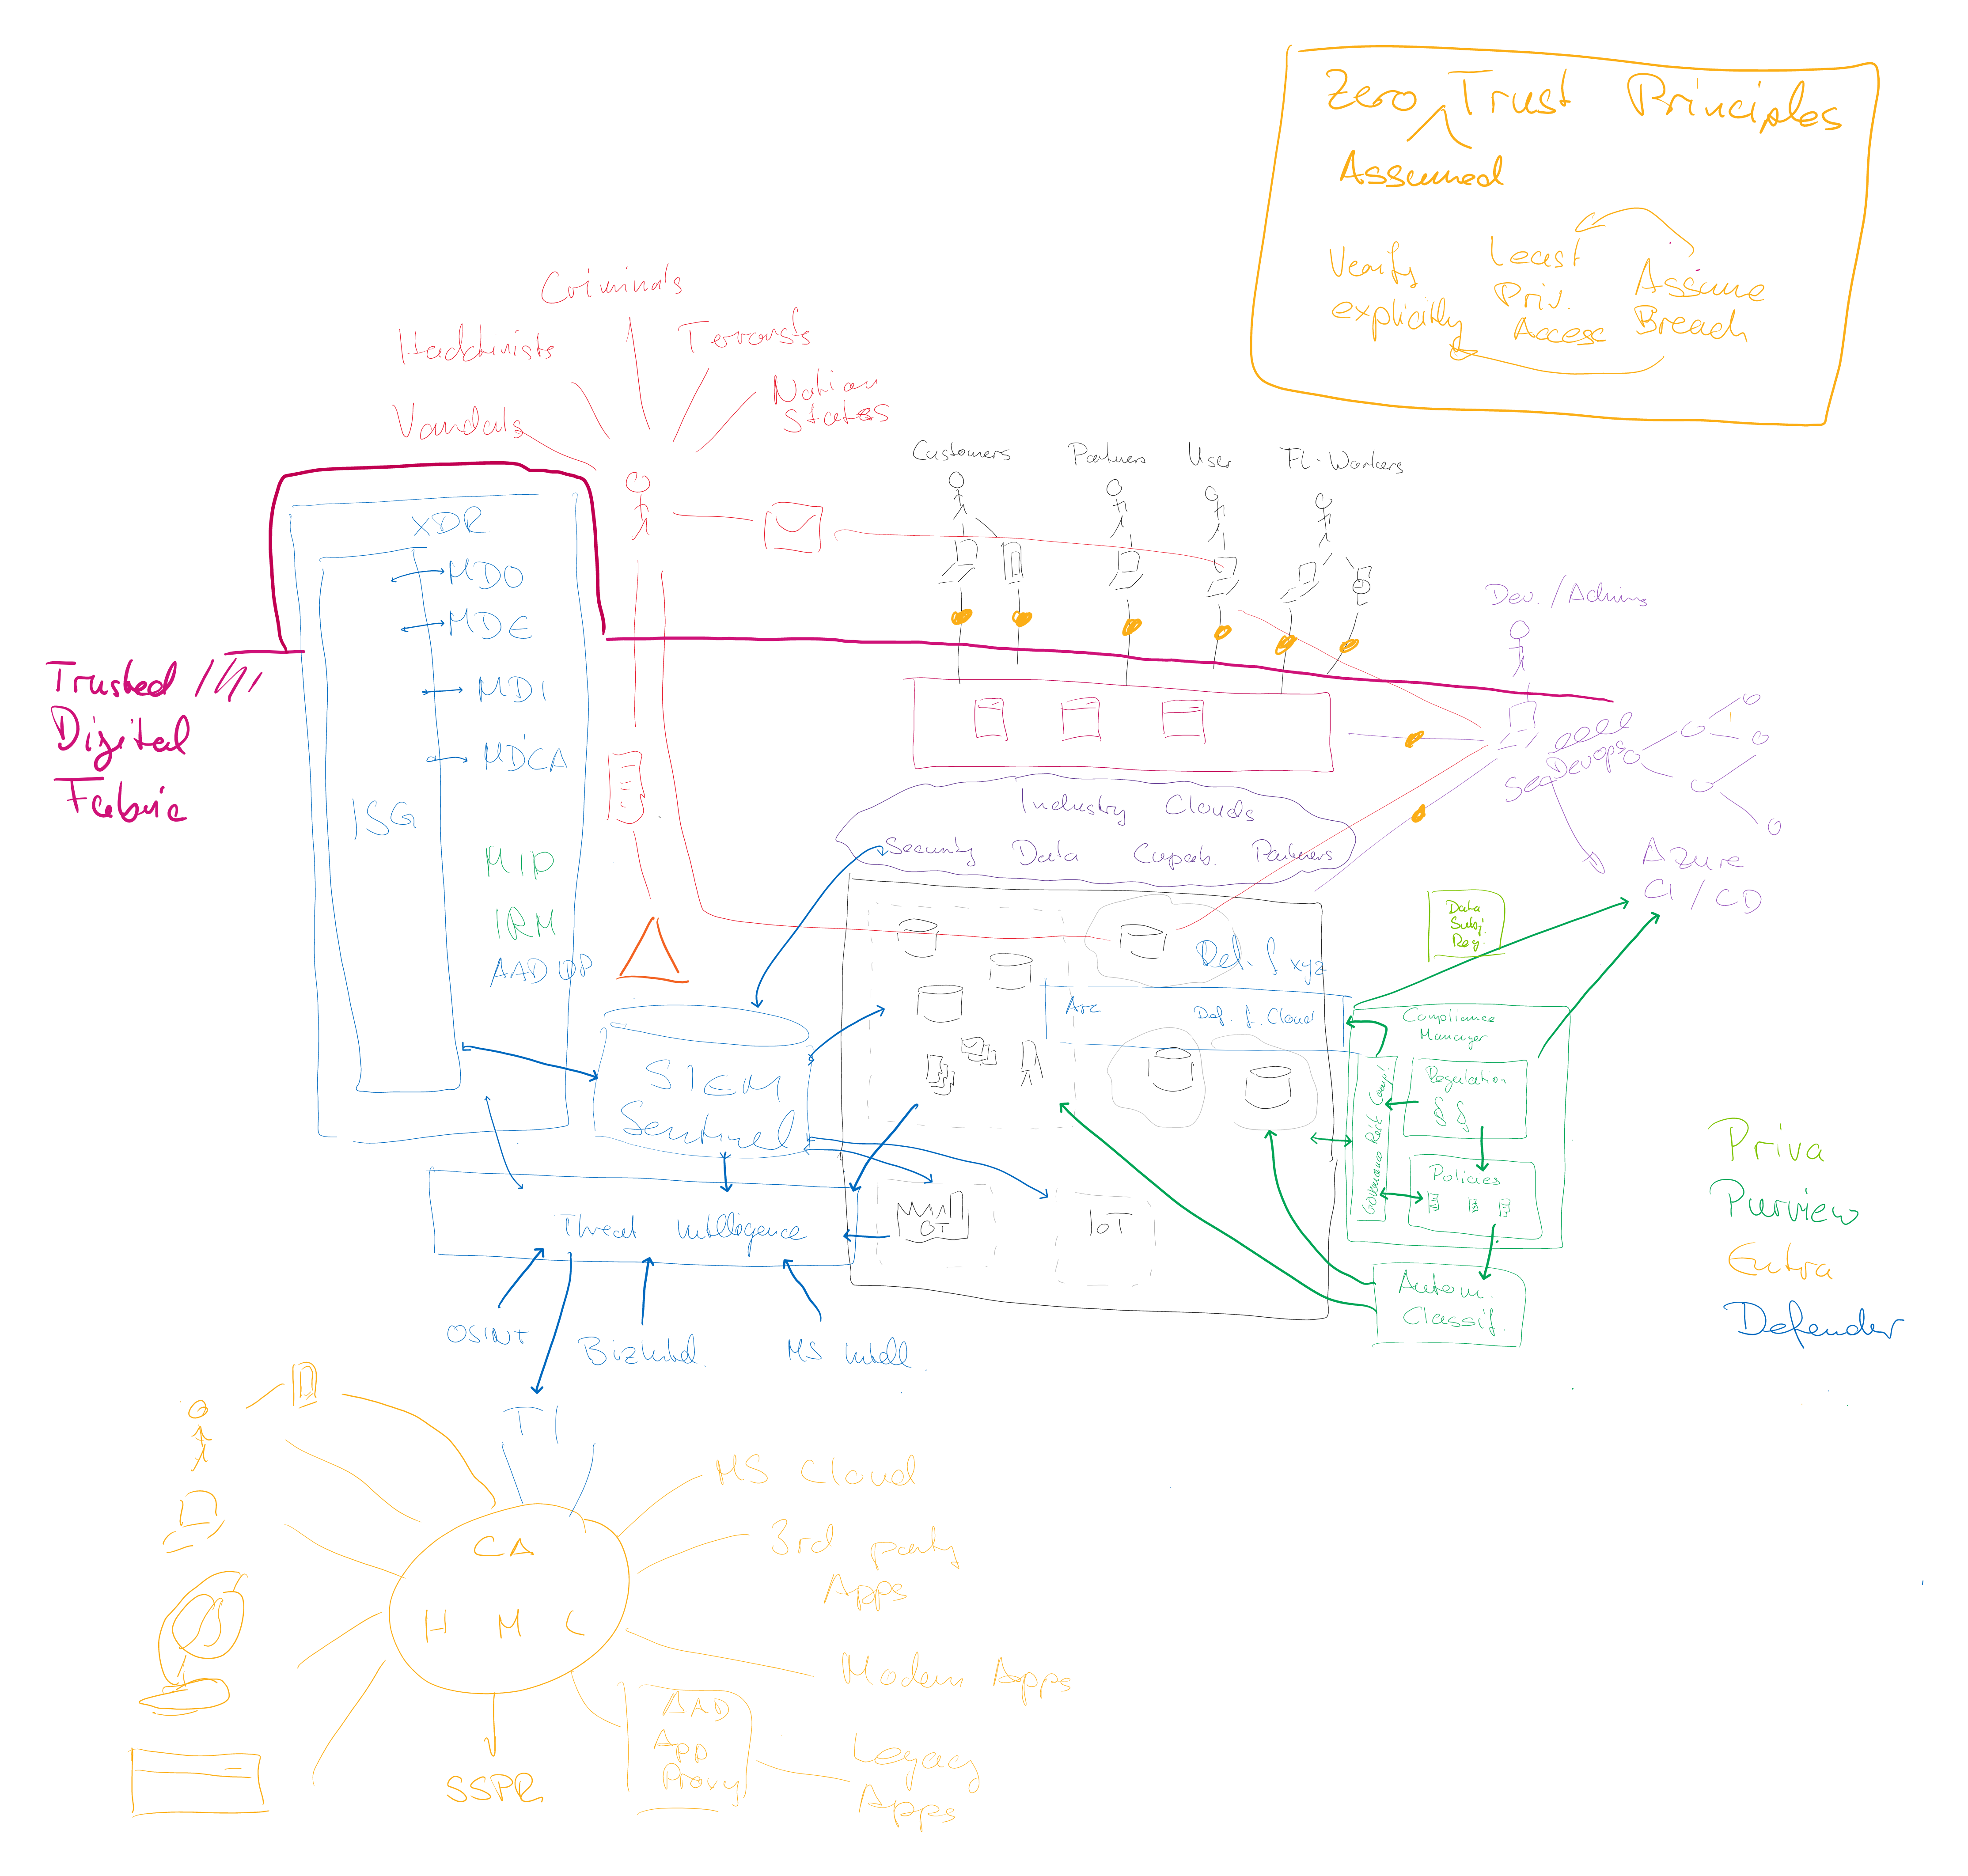 Zero Trust Principles
Assumed
Verify
explicitly
Least
Priv.
Access
Assume
Breach
Criminals
Terrorists
Nation
States
Vandals
Customers
Partners
User
FL-Workers
XDR
MDO
MDE
MDI
MDCA
ISG
MIP
IRM
AAD IP
Trusted
Digital
Fabric
Dev./Admins
DevOps
Azure
CI/CD
Industry Clouds
Security Data Capab. Partners
Def. f. xyz
Arc
Def. f. Cloud
Data
Subj.
Req.
Compliance
Manager
Regulation
§ §
Policies
Governance Risk Compl.
Autom.
Classif.
SIEM
Sentinel
Threat Intelligence
OT
IoT
OSINT
MS Intell.
Priva
Purview
Entra
Defender
TI
CA
H M L
MS Cloud
3rd party
Apps
Modern Apps
AAD
App
Proxy
Legacy
Apps
SSPR